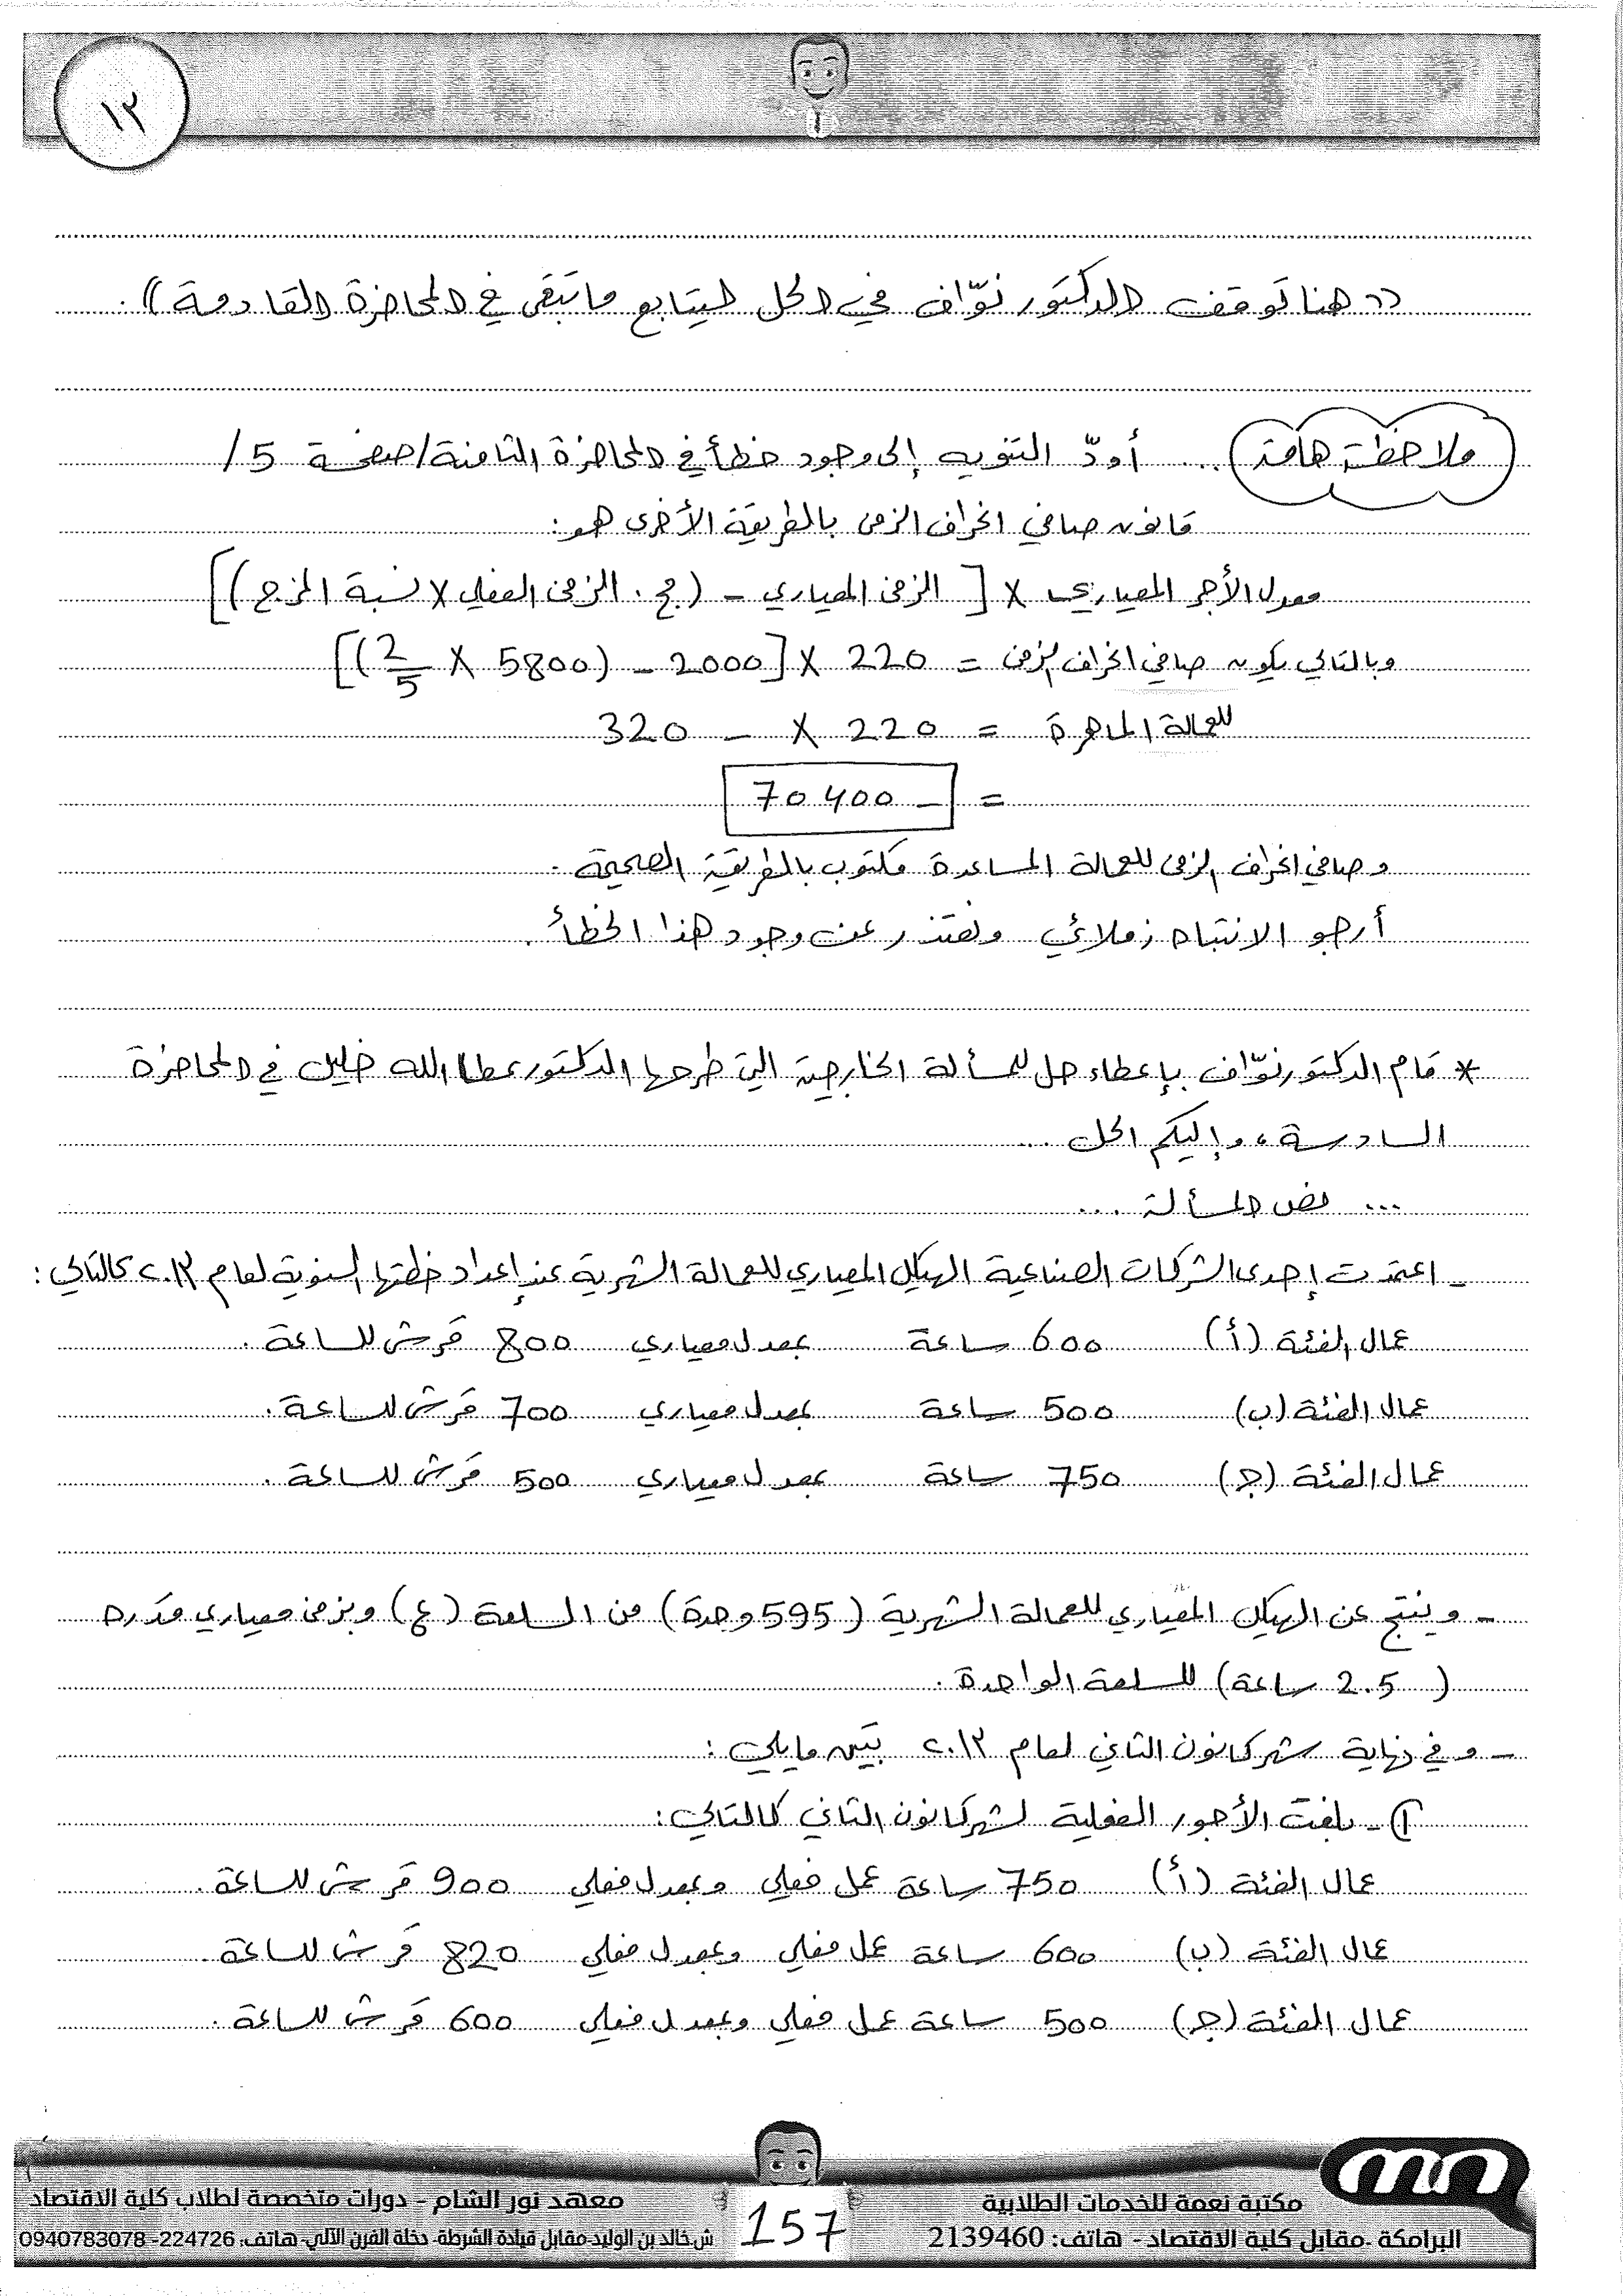 ١٢
(( هنا توقف الدكتور نوّاف في الحل ليتابع ما تبقى في المحاضرة القادمة )) .
ملاحظة هامة ... أودّ التنويه إلى وجود خطأ في المحاضرة الثامنة / صفحة 5 /
قانون صافي انحراف الزمن بالطريقة الأخرى هو :
معدل الأجر المعياري × [ الزمن المعياري - ( مج . الزمن الفعلي × نسبة المزج ) ]
وبالتالي يكون صافي انحراف الزمن = 220 × [ 2000 - ( 5800 × 2/5 ) ]
للعمالة الماهرة = 220 × - 320
= - 70400
وصافي انحراف الزمن للعمالة المساعدة مكتوب بالطريقة الصحيحة .
أرجو الانتباه زملائي ونعتذر عن وجود هذا الخطأ .
* قام الدكتور نوّاف بإعطاء حل للمسألة الخارجية التي طرحها الدكتور عطا الله خليل في المحاضرة
السادسة ، وإليكم الحل ...
... نص المسألة ...
- اعتمدت إحدى الشركات الصناعية الهيكل المعياري للعمالة الشهرية عند إعداد خطتها السنوية لعام ٢٠١٣ كالتالي :
عمال الفئة (أ) 600 ساعة بمعدل معياري 800 قرش للساعة .
عمال الفئة (ب) 500 ساعة بمعدل معياري 700 قرش للساعة .
عمال الفئة (ج) 750 ساعة بمعدل معياري 500 قرش للساعة .
- وينتج عن الهيكل المعياري للعمالة الشهرية ( 595 وحدة ) من السلعة (ع) وبزمن معياري قدره
( 2.5 ساعة ) للسلعة الواحدة .
- وفي نهاية شهر كانون الثاني لعام ٢٠١٣ تبيّن ما يلي :
① - بلغت الأجور الفعلية لشهر كانون الثاني كالتالي :
عمال الفئة (أ) 750 ساعة عمل فعلي وبمعدل فعلي 900 قرش للساعة .
عمال الفئة (ب) 600 ساعة عمل فعلي وبمعدل فعلي 820 قرش للساعة .
عمال الفئة (ج) 500 ساعة عمل فعلي وبمعدل فعلي 600 قرش للساعة .
مكتبة نعمة للخدمات الطلابية
البرامكة - مقابل كلية الاقتصاد - هاتف: 2139460
157
معهد نور الشام - دورات متخصصة لطلاب كلية الاقتصاد
ش.خالد بن الوليد-مقابل قيادة الشرطة- دخلة الفرن الآلي-هاتف: 224726-0940783078